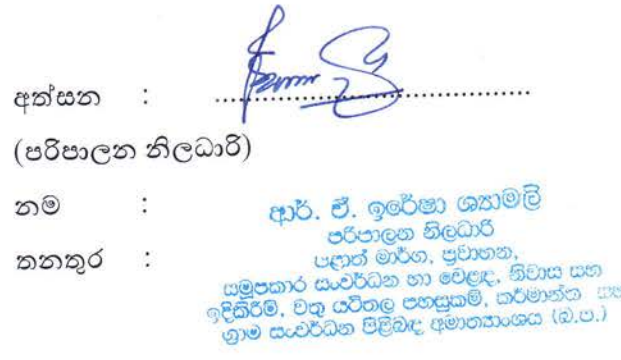 අත්සන :
(පරිපාලන නිලධාරි)
නම : ආර්. ඒ. ඉරේෂා ශ්‍යාමලි
පරිපාලන නිලධාරි
තනතුර : පළාත් මාර්ග, ප්‍රවාහන,
සමූපකාර සංවර්ධන හා වෙළඳ, නිවාස සහ
ඉදිකිරීම්, වතු යටිතල පහසුකම්, කර්මාන්ත සහ
ග්‍රාම සංවර්ධන පිළිබඳ අමාත්‍යාංශය (බ.ප.)